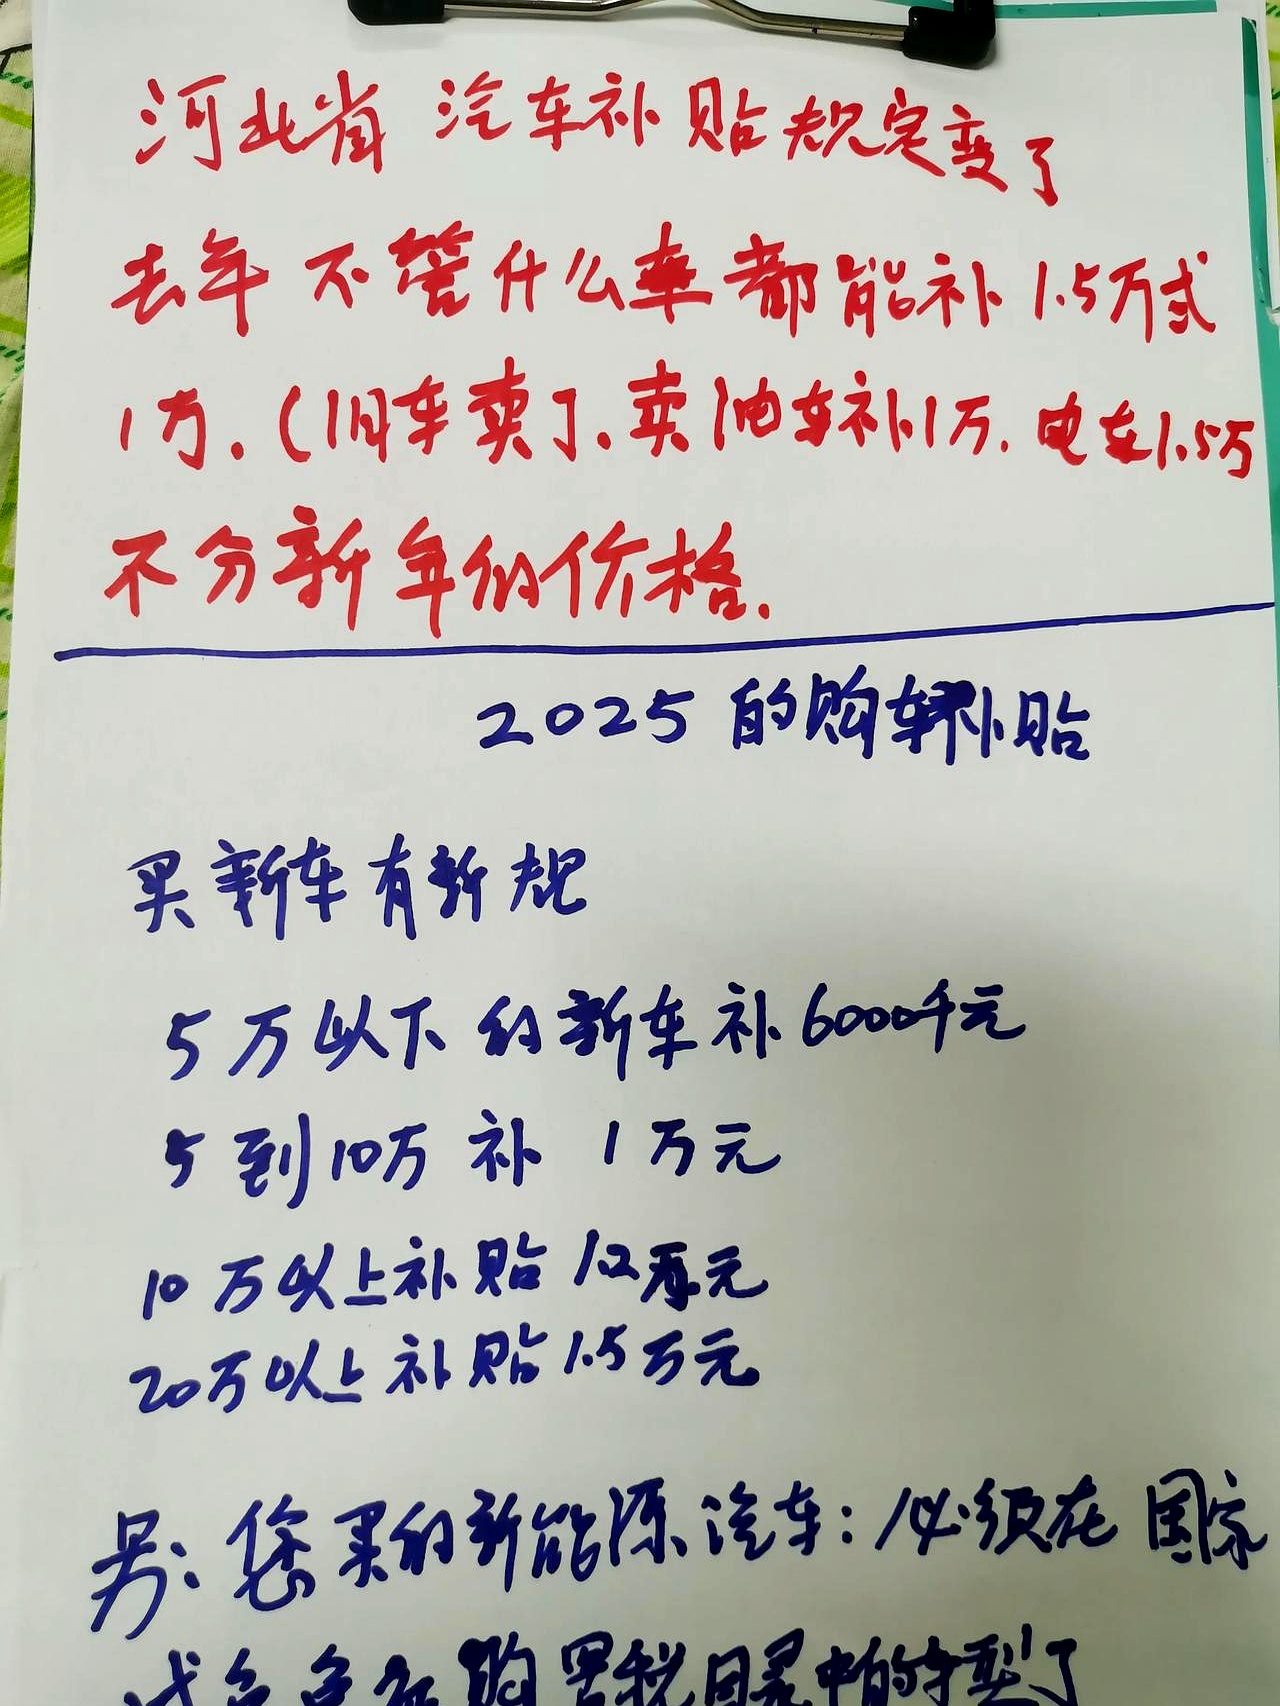 河北省 汽车补贴规定变了
去年 不管什么车都能补1.5万或
1万.(旧车卖了.卖油车补1万.电车1.5万
不分新车的价格.
2025 的购车补贴
买新车有新规
5万以下的新车补6000千元
5到10万 补 1万元
10万以上补贴 12万元
20万以上补贴1.5万元
另:您买的新能源汽车:必须在国家
减免车辆购置税目录中的车型了